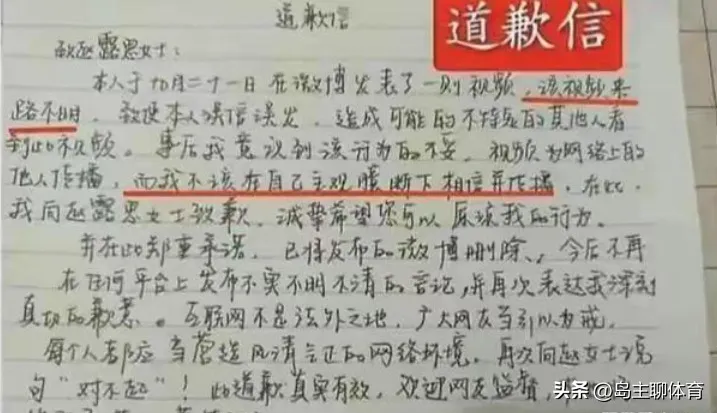 道歉信
道歉信
致赵露思女士：
本人于10月二十一日在微博发表了一则视频，该视频来
路不明，致使本人误信误发，造成可能的不特定的其他人看
到此视频。事后我意识到该行为的不妥，视频为网络上的
他人传播，而我不该在自己主观臆断下相信并传播，在此，
我向赵露思女士致歉，诚挚希望您可以原谅我的行为。
并在此郑重承诺，已将发布的微博删除、，今后不再
在任何平台上发布不实不明不清的言论，并再次表达我深刻
真切的歉意。互联网不是法外之地，广大网友当引以为戒，
每个人都应当营造风清气正的网络环境。再次向赵女士说
句“对不起”！此道歉真实有效，欢迎网友监督，
头条 @岛主聊体育